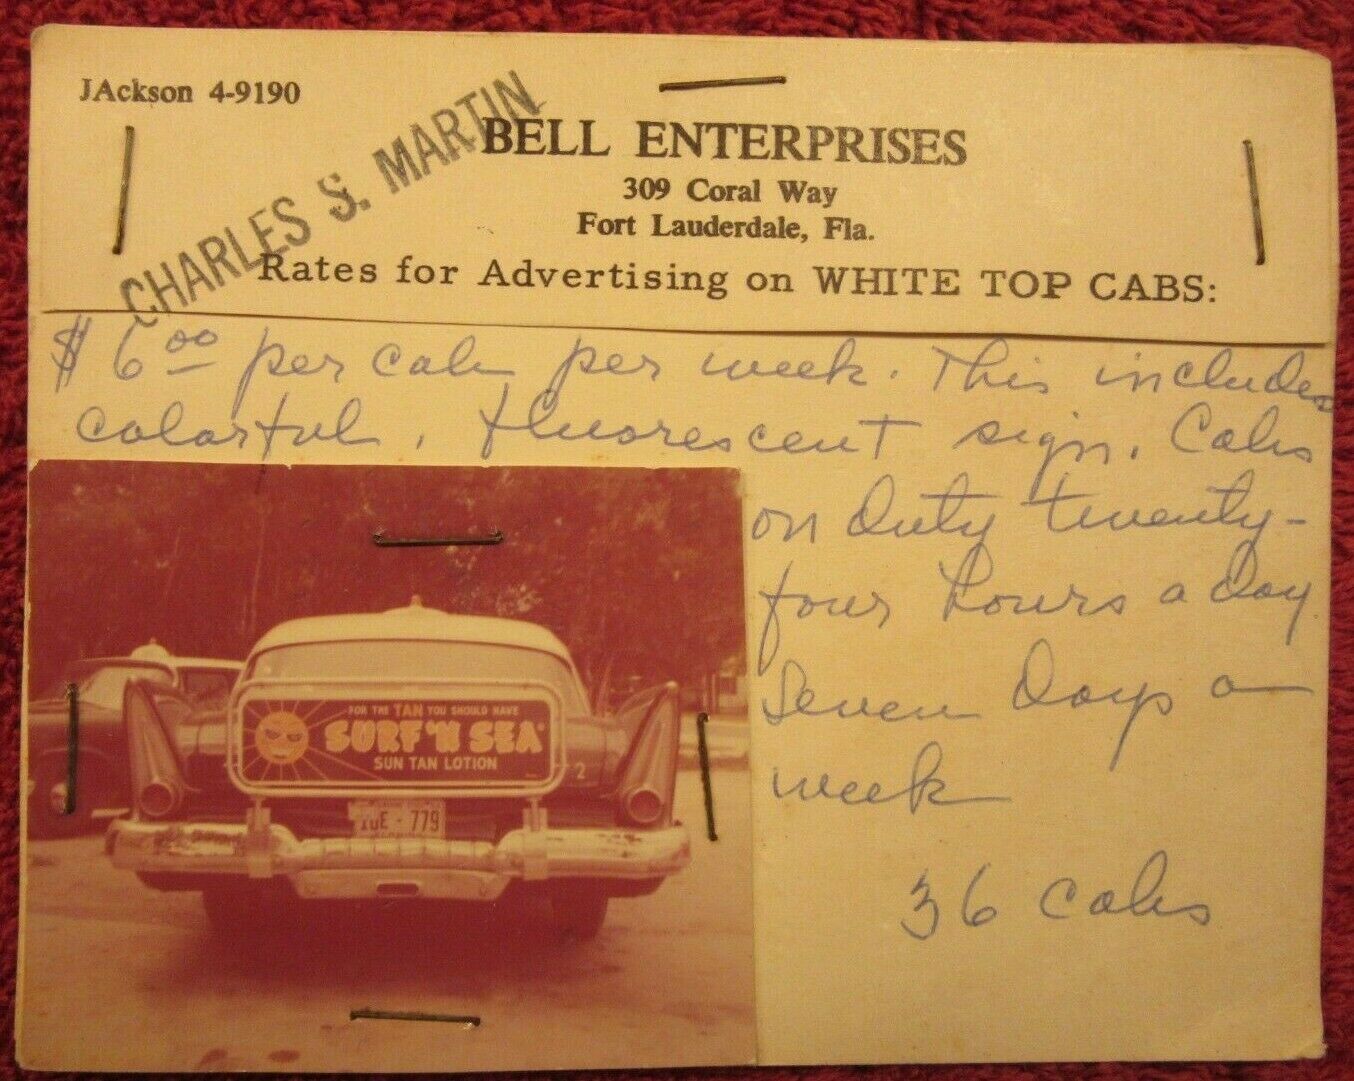 JAckson 4-9190
CHARLES S. MARTIN
BELL ENTERPRISES
309 Coral Way
Fort Lauderdale, Fla.
Rates for Advertising on WHITE TOP CABS:
$6.00 per cab per week. This includes
colorful, fluorescent sign. Cabs
on duty twenty-
four hours a day
seven days a
week
36 cabs
FOR THE TAN YOU SHOULD HAVE
SURF 'N SEA
SUN TAN LOTION
2
10E-779